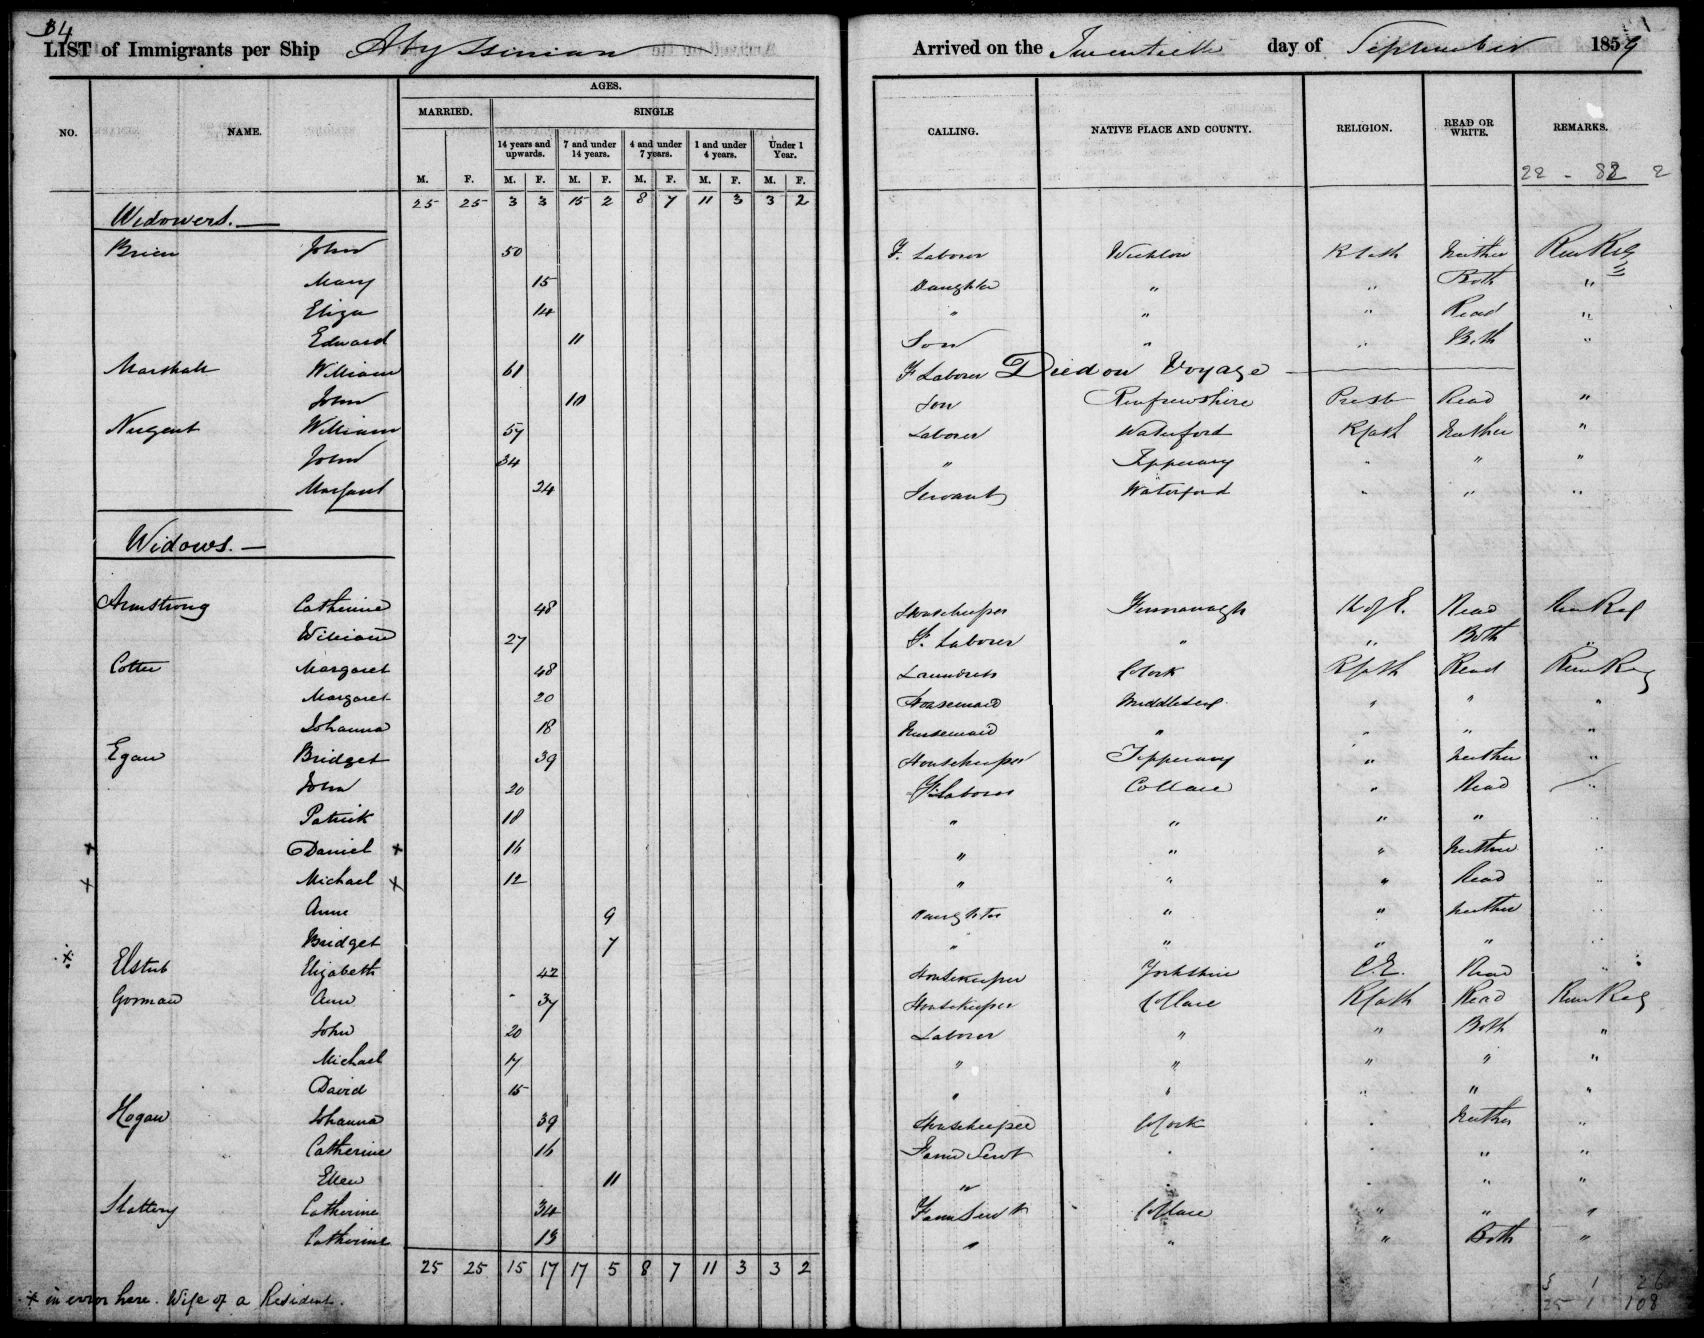 34
LIST of Immigrants per Ship Abyssinian Arrived on the Twentieth day of September 1859
NO. NAME. AGES. CALLING. NATIVE PLACE AND COUNTY. RELIGION. READ OR WRITE. REMARKS.
MARRIED. SINGLE
14 years and upwards. 7 and under 14 years. 4 and under 7 years. 1 and under 4 years. Under 1 Year.
M. F. M. F. M. F. M. F. M. F. M. F.
22 - 82 2
25 25 3 3 15 2 8 7 11 3 3 2
Widowers.—
Brien John 50 F. Laborer Wicklow R Cath Neither Rem Reg
Mary 15 Daughter " " Both "
Eliza 14 " " " Read "
Edward 11 Son " " Both "
Marshall William 61 F Laborer Died on Voyage
John 10 Son Renfrewshire Presb Read "
Nugent William 57 Laborer Waterford R Cath Neither "
John 34 " Tipperary " " "
Margaret 24 Servant Waterford " " "
Widows.—
Armstrong Catherine 48 Housekeeper Fermanagh Ch of E. Read Rem Reg
William 27 F. Laborer " " Both "
Cotter Margaret 48 Laundress Co Cork R Cath Read Rem Reg
Margaret 20 Housemaid Middlesex " " "
Johanna 18 Nursemaid " " " "
Egan Bridget 39 Housekeeper Tipperary " Neither "
John 20 F. Laborer Co Clare " Read "
Patrick 18 " " " " "
x Daniel x 16 " " " Neither "
x Michael x 12 " " " Read "
Anne 9 Daughter " " Neither "
Bridget 7 " " " " "
x Elstub Elizabeth 42 Housekeeper Yorkshire C.E. Read "
Gorman Ann 37 Housekeeper Co Clare R Cath Read Rem Reg
John 20 Laborer " " Both "
Michael 17 " " " " "
David 15 " " " " "
Hogan Johanna 39 Housekeeper Co Cork " Neither "
Catherine 16 Farm Servt " " " "
Ellen 11 " " " " "
Slattery Catherine 34 Farm Servt Co Clare " " "
Catherine 13 " " " Both "
25 25 15 17 17 5 8 7 11 3 3 2
x in error here. Wife of a Resident.
3 1 26
25 1 108